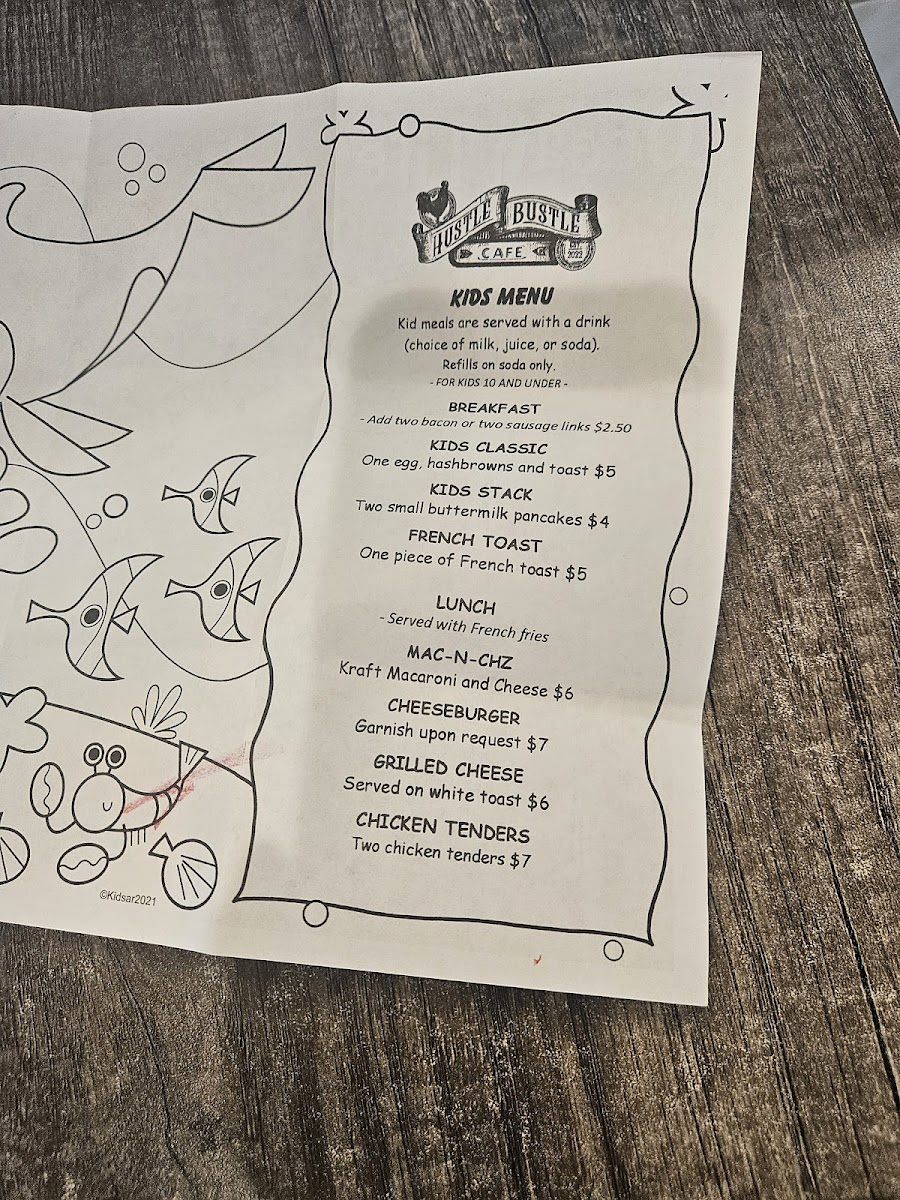 HUSTLE BUSTLE
CAFE
EST.
2022
KIDS MENU
Kid meals are served with a drink
(choice of milk, juice, or soda).
Refills on soda only.
- FOR KIDS 10 AND UNDER -
BREAKFAST
- Add two bacon or two sausage links $2.50
KIDS CLASSIC
One egg, hashbrowns and toast $5
KIDS STACK
Two small buttermilk pancakes $4
FRENCH TOAST
One piece of French toast $5
LUNCH
- Served with French fries
MAC-N-CHZ
Kraft Macaroni and Cheese $6
CHEESEBURGER
Garnish upon request $7
GRILLED CHEESE
Served on white toast $6
CHICKEN TENDERS
Two chicken tenders $7
©Kidsar2021